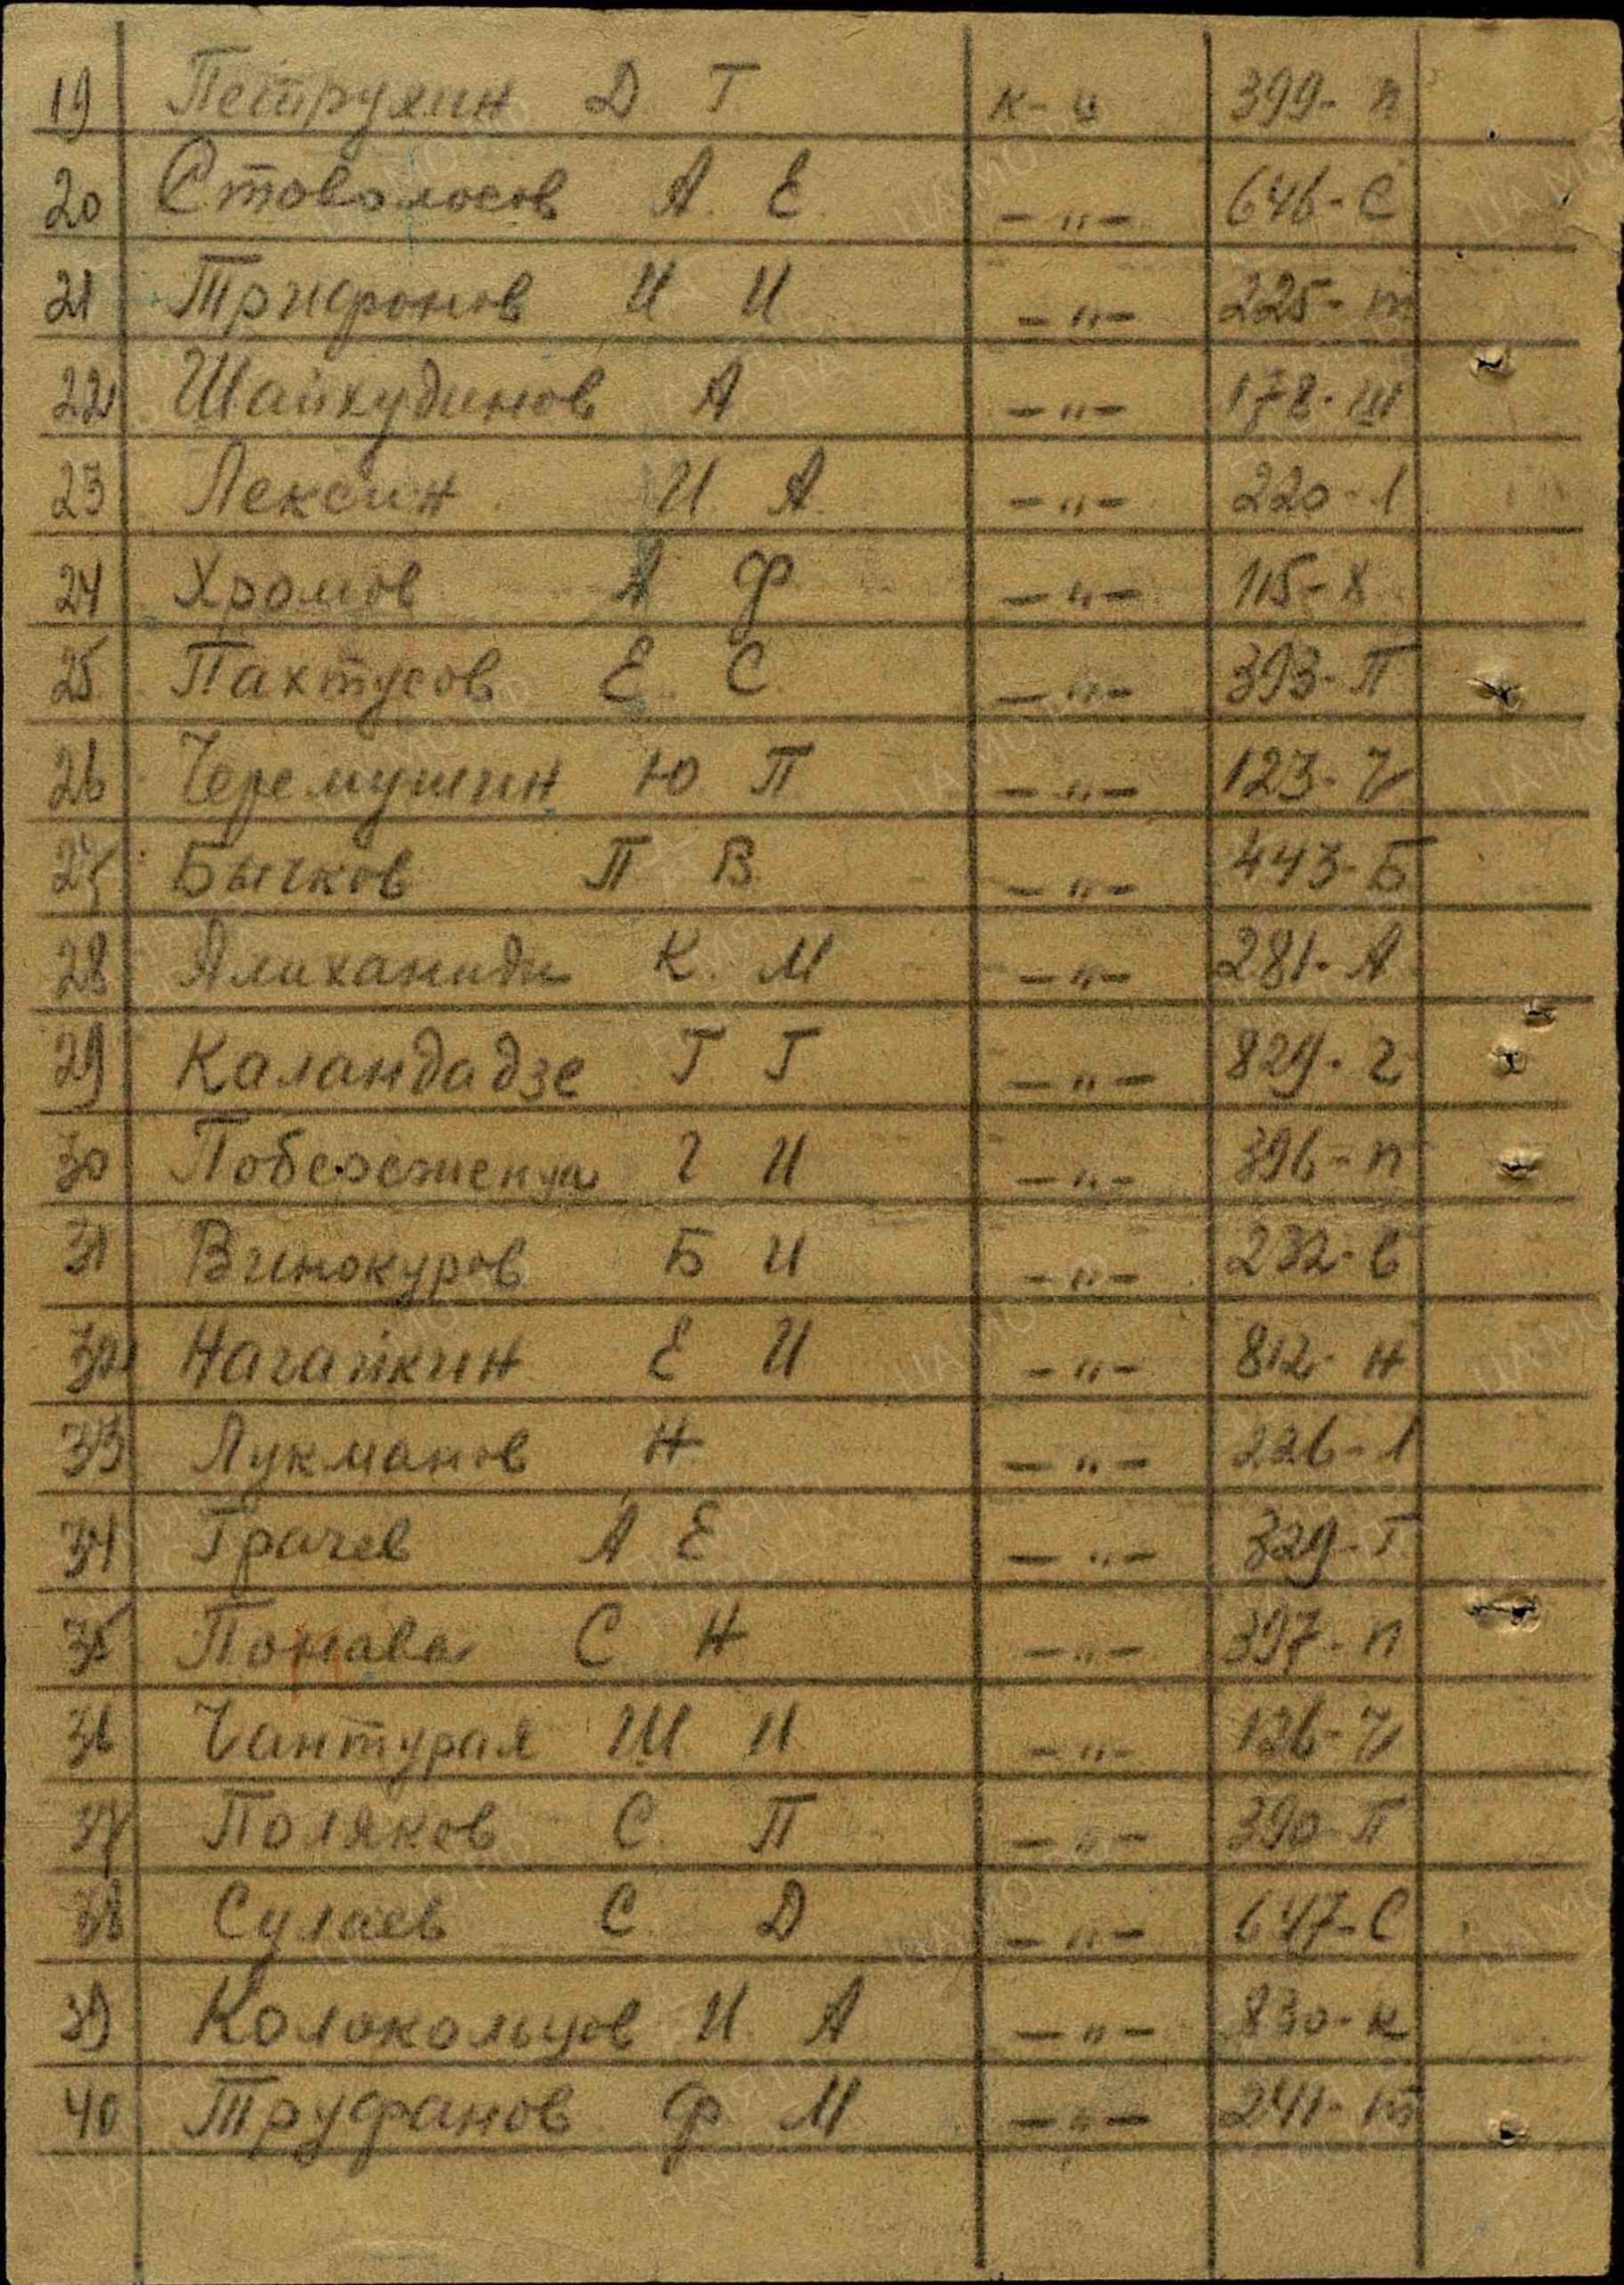 19 Петрухин Д Г к-ц 399-п
20 Стоволосов А. Е. -"- 646-С
21 Трифонов И И -"- 225-т
22 Шайхудинов А -"- 178-Ш
23 Лексин И. А. -"- 220-л
24 Хромов А Ф -"- 115-х
25 Пахтусов Е. С. -"- 393-П
26 Черемушин Ю П -"- 123-Ч
27 Бычков П В -"- 443-Б
28 Алиханиди К. М -"- 281-А
29 Каландадзе Г Г -"- 829-г
30 Г И -"- 396-п
31 Винокуров Б И -"- 232-в
32 Нагайкин Е И -"- 812-н
33 Лукманов Н -"- 226-л
34 Грачев А Е -"- 329-Г
35 С Н -"- 397-п
36 Чантурая Ш И -"- 126-Ч
37 Поляков С. П -"- 390-П
38 Сулаев С. Д -"- 647-С
39 Колокольцов И. А -"- 830-к
40 Труфанов Ф М -"- 241-т